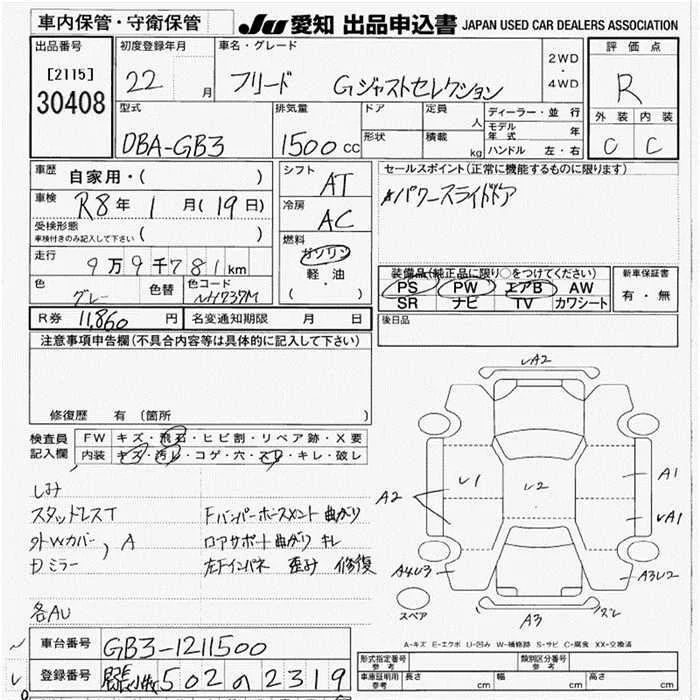 車内保管・守衛保管
JU 愛知 出品申込書 JAPAN USED CAR DEALERS ASSOCIATION
出品番号
[2115]
30408
初度登録年月
22 月
車名・グレード
フリード Gジャストセレクション
2WD
・
4WD
評価点
R
外装 内装
C C
型式
DBA-GB3
排気量
1500 cc
ドア
形状
定員 人
積載 kg
ディーラー・並行
モデル年式 年
ハンドル 左・右
車歴
自家用・( )
車検
R8年 1月(19日)
受検形態
車検付きのみ記入して下さい ( )
走行
9万9千781km
色
グレー
色替
色コード
NH737M
シフト
AT
冷房
AC
燃料
ガソリン
軽油
( )
セールスポイント(正常に機能するものに限ります)
パワースライドドア
装備品(純正品に限り○をつけてください)
PS PW エアB AW
SR ナビ TV カワシート
新車保証書
有・無
R券 11,860円
名変通知期限 月 日
後日品
注意事項申告欄(不具合内容等は具体的に記入して下さい)
修復歴 有(箇所 )
検査員記入欄
FW キズ・飛石・ヒビ割・リペア跡・X要
内装 キズ・汚レ・コゲ・穴・スレ・キレ・破レ
しみ
スタッドレスT
外Wカバー, A
ミラー
各AU
Fバンパーホースメント 曲がり
ロアサポート曲がり キレ
左Fインパネ 歪み 修復
レA2
A1
レ1
レ2
A2
レA1
A4U3
A3U2
A3
ズレ
スペア
A-キズ E-エクボ U-凹み W-補修跡 S-サビ C-腐食 XX-交換済
車台番号
GB3-1211500
登録番号
502 の 2319
形式指定番号
参考
類別区分番号
参考
車庫証明用
参考
長さ cm
幅 cm
高さ cm